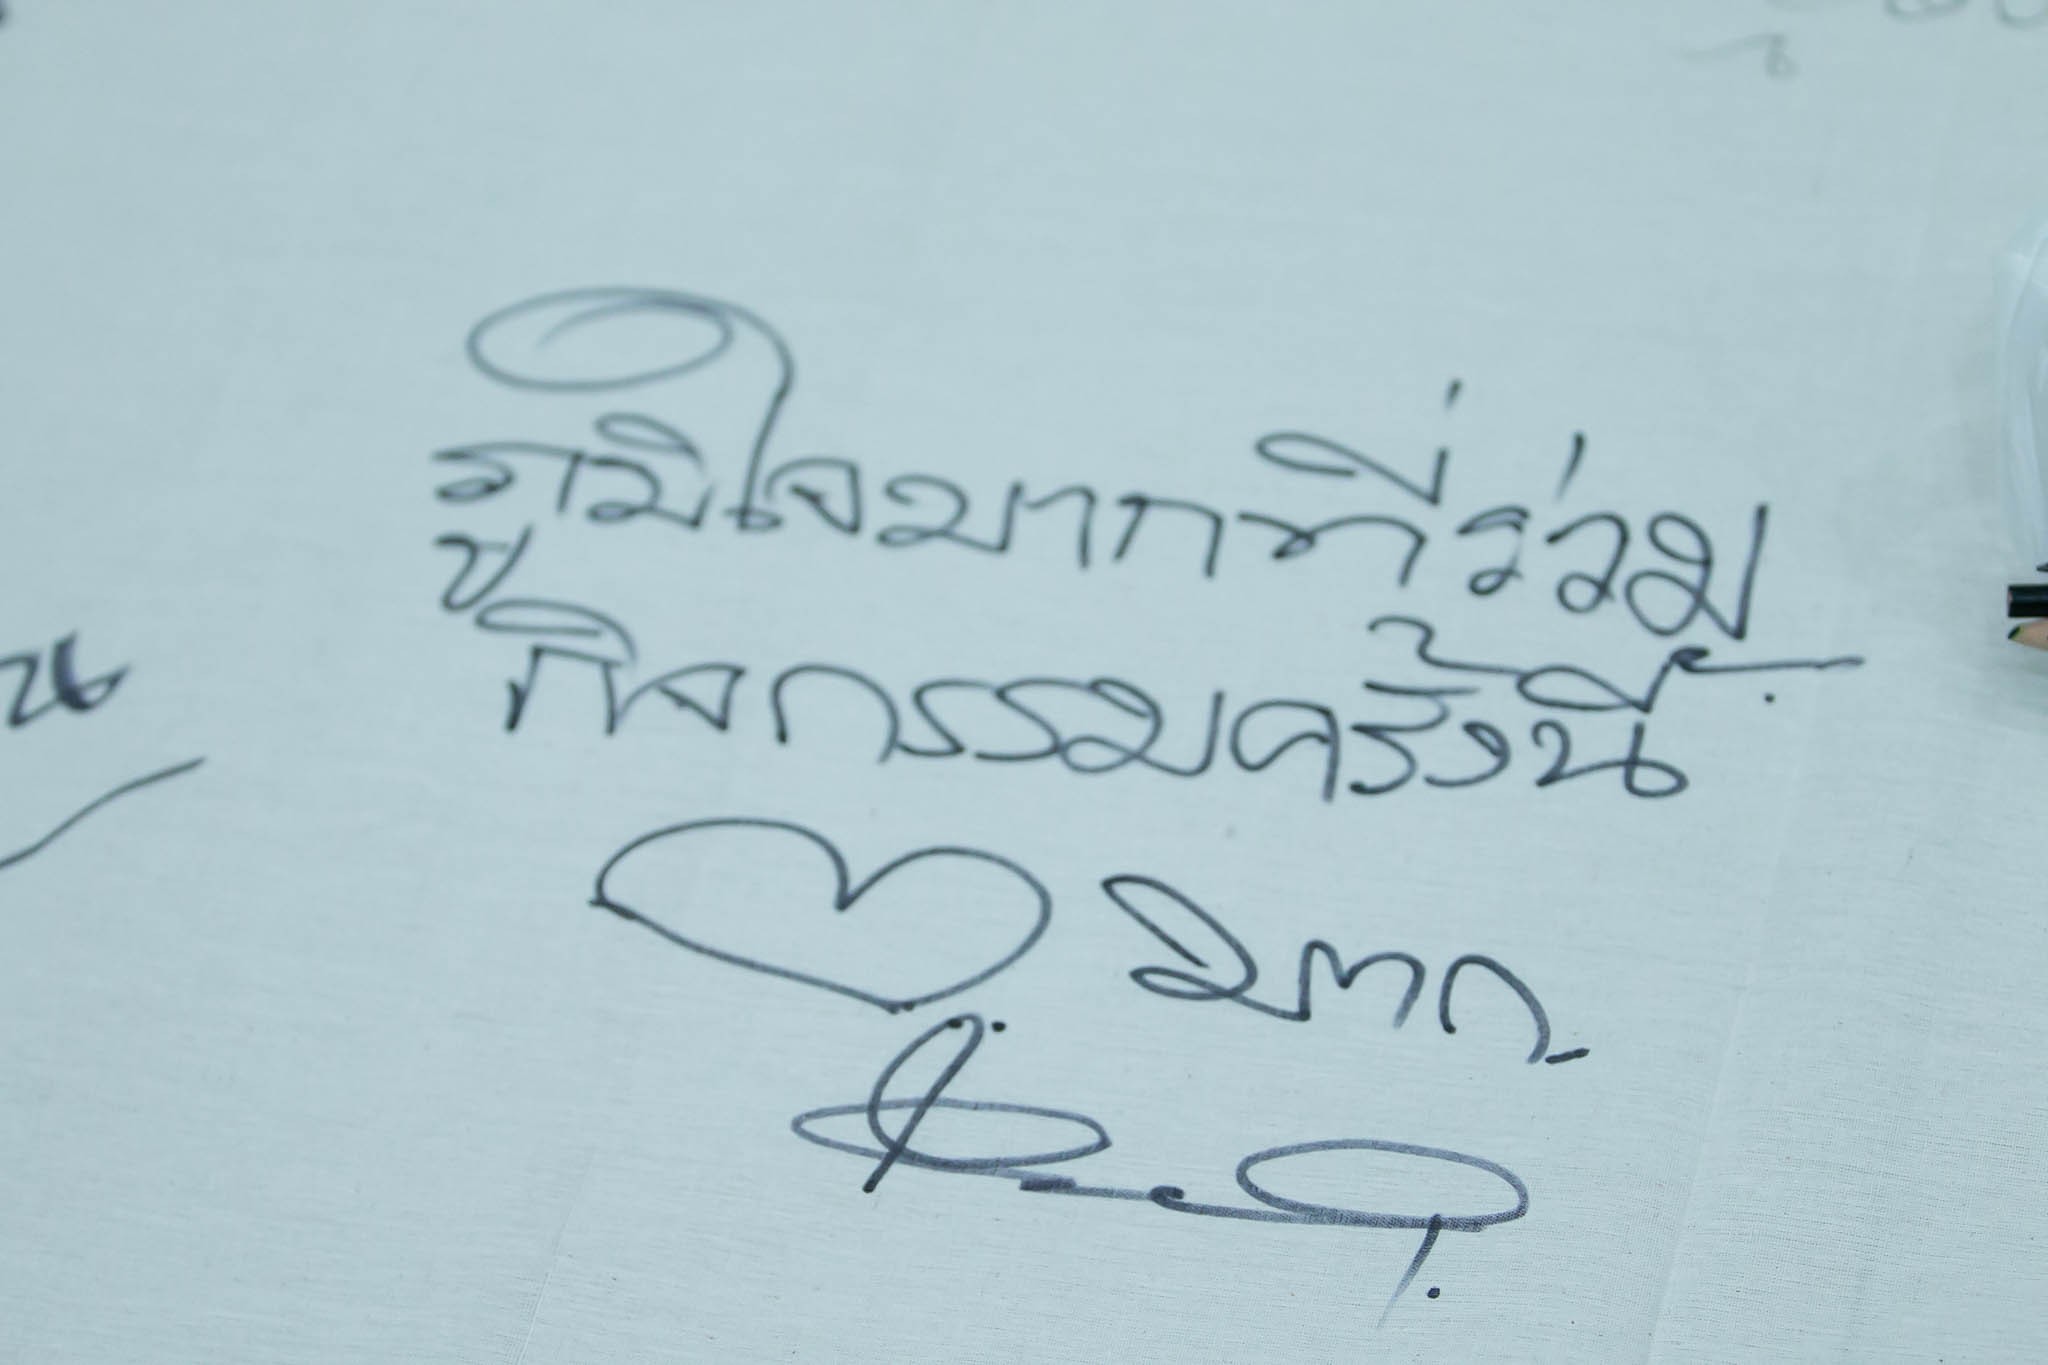 ภูมิใจมากที่ร่วม
กิจกรรมครั้งนี้